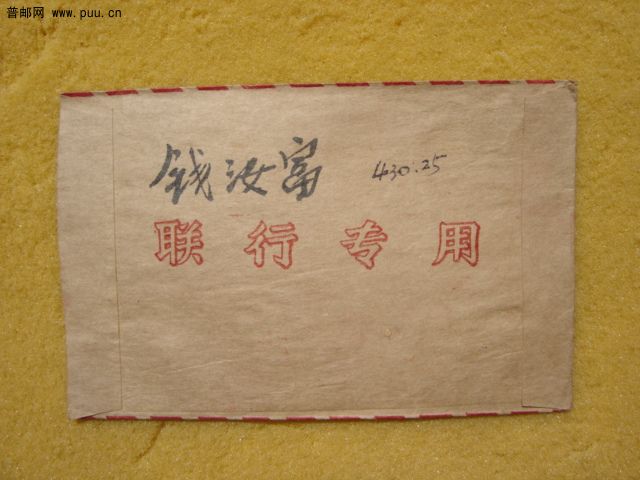 普邮网 www.puu.cn
钱汝富 430.25
联行专用